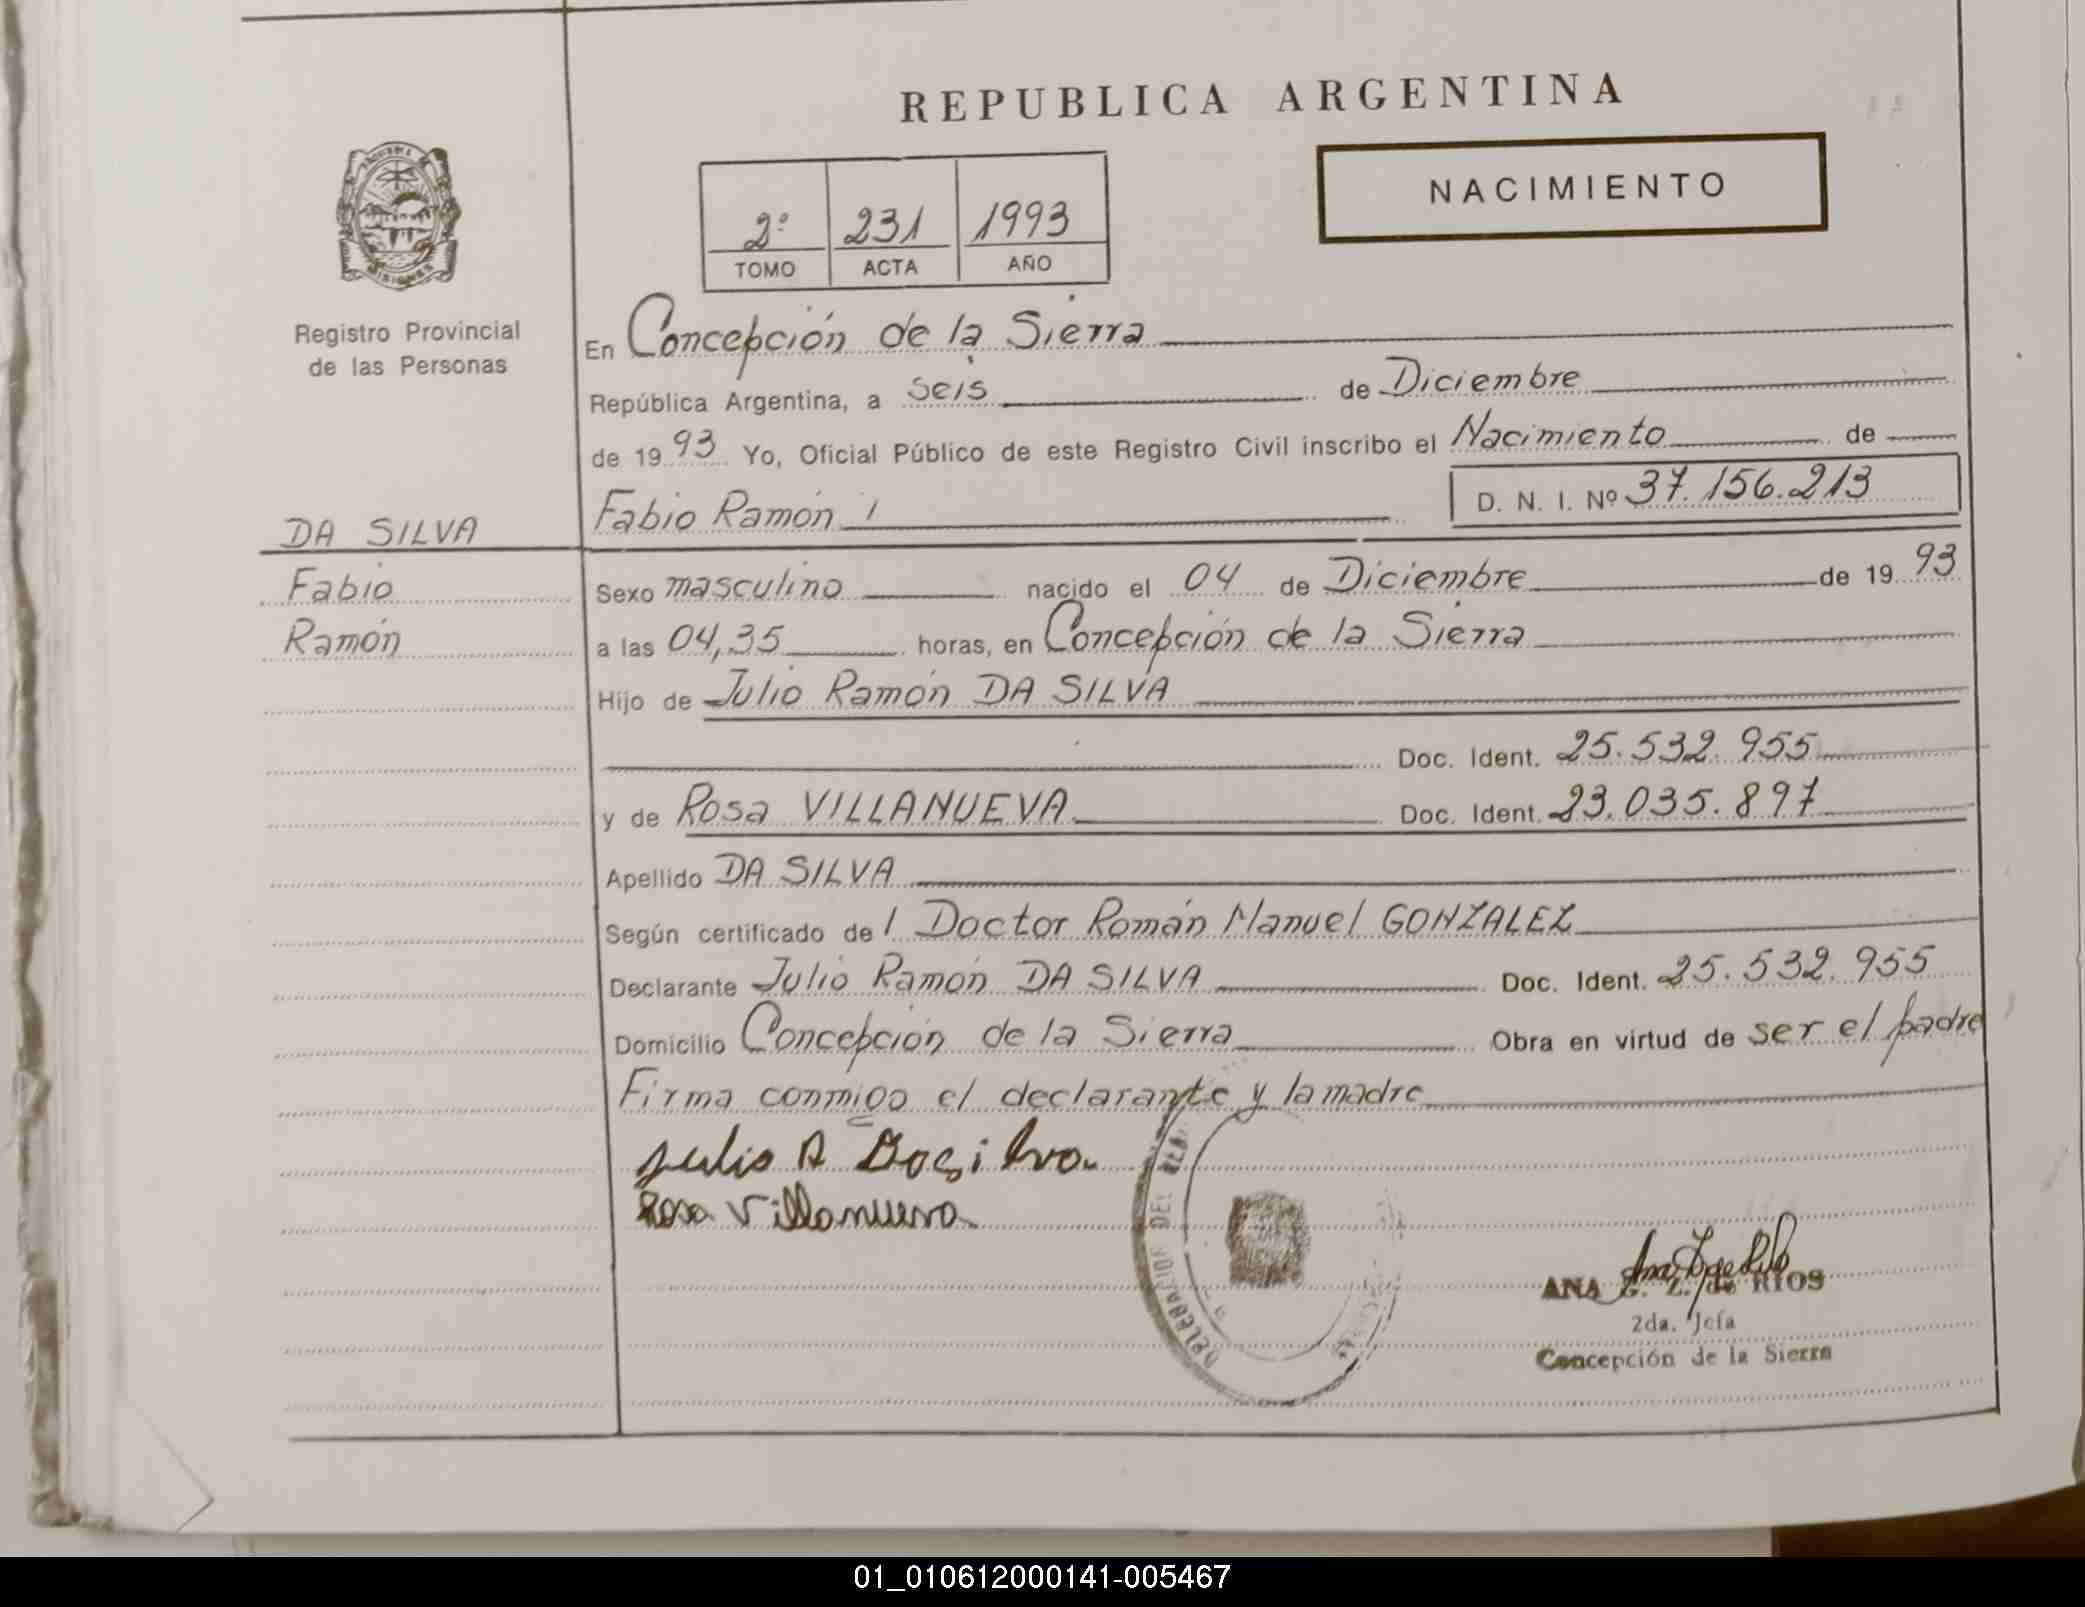 REPUBLICA ARGENTINA
NACIMIENTO
2º 231 1993
TOMO ACTA AÑO
MISIONES
Registro Provincial
de las Personas
En Concepción de la Sierra
República Argentina, a seis de Diciembre
de 1993 Yo, Oficial Público de este Registro Civil inscribo el Nacimiento de
Fabio Ramón D. N. I. Nº 37.156.213
DA SILVA
Fabio
Ramón
Sexo masculino nacido el 04 de Diciembre de 1993
a las 04,35 horas, en Concepción de la Sierra
Hijo de Julio Ramón DA SILVA
Doc. Ident. 25.532.955
y de Rosa VILLANUEVA Doc. Ident. 23.035.897
Apellido DA SILVA
Según certificado del Doctor Román Manuel GONZALEZ
Declarante Julio Ramón DA SILVA Doc. Ident. 25.532.955
Domicilio Concepción de la Sierra Obra en virtud de ser el padre
Firma conmigo el declarante y la madre
Julio R Dasilva
Rosa Villanueva
DELEGACION DEL
ANA G. Z. de RIOS
2da. Jefa
Concepción de la Sierra
01_010612000141-005467